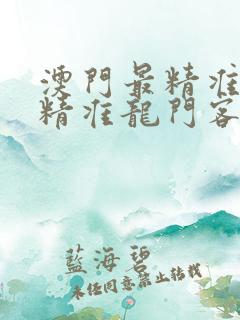 澳門最精准
精准龍門客
藍海碧
未经同意禁止转载